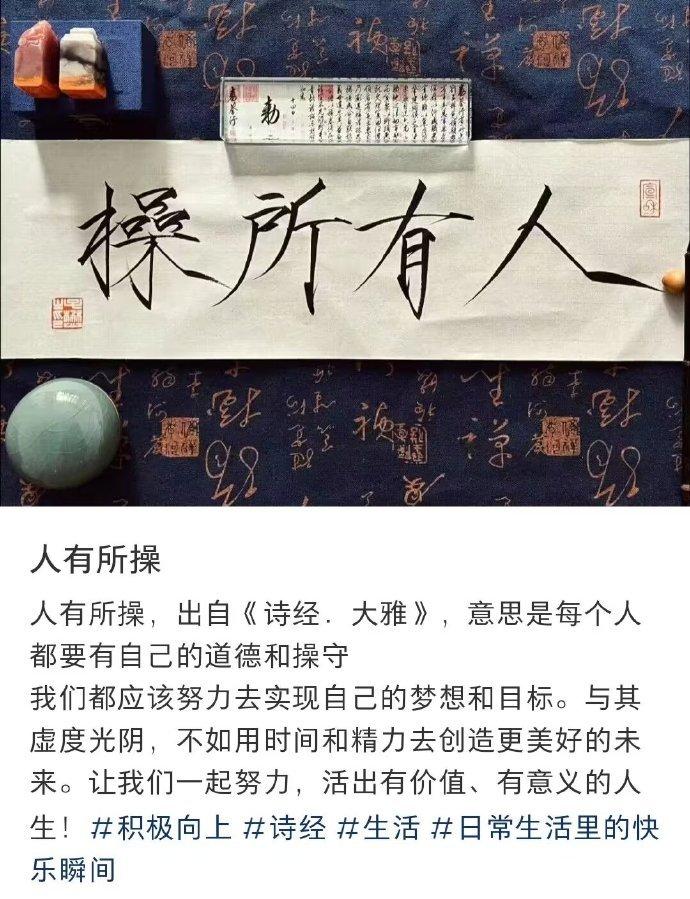 勅
操所有人
人有所操
人有所操，出自《诗经．大雅》，意思是每个人
都要有自己的道德和操守
我们都应该努力去实现自己的梦想和目标。与其
虚度光阴，不如用时间和精力去创造更美好的未
来。让我们一起努力，活出有价值、有意义的人
生！#积极向上 #诗经 #生活 #日常生活里的快
乐瞬间